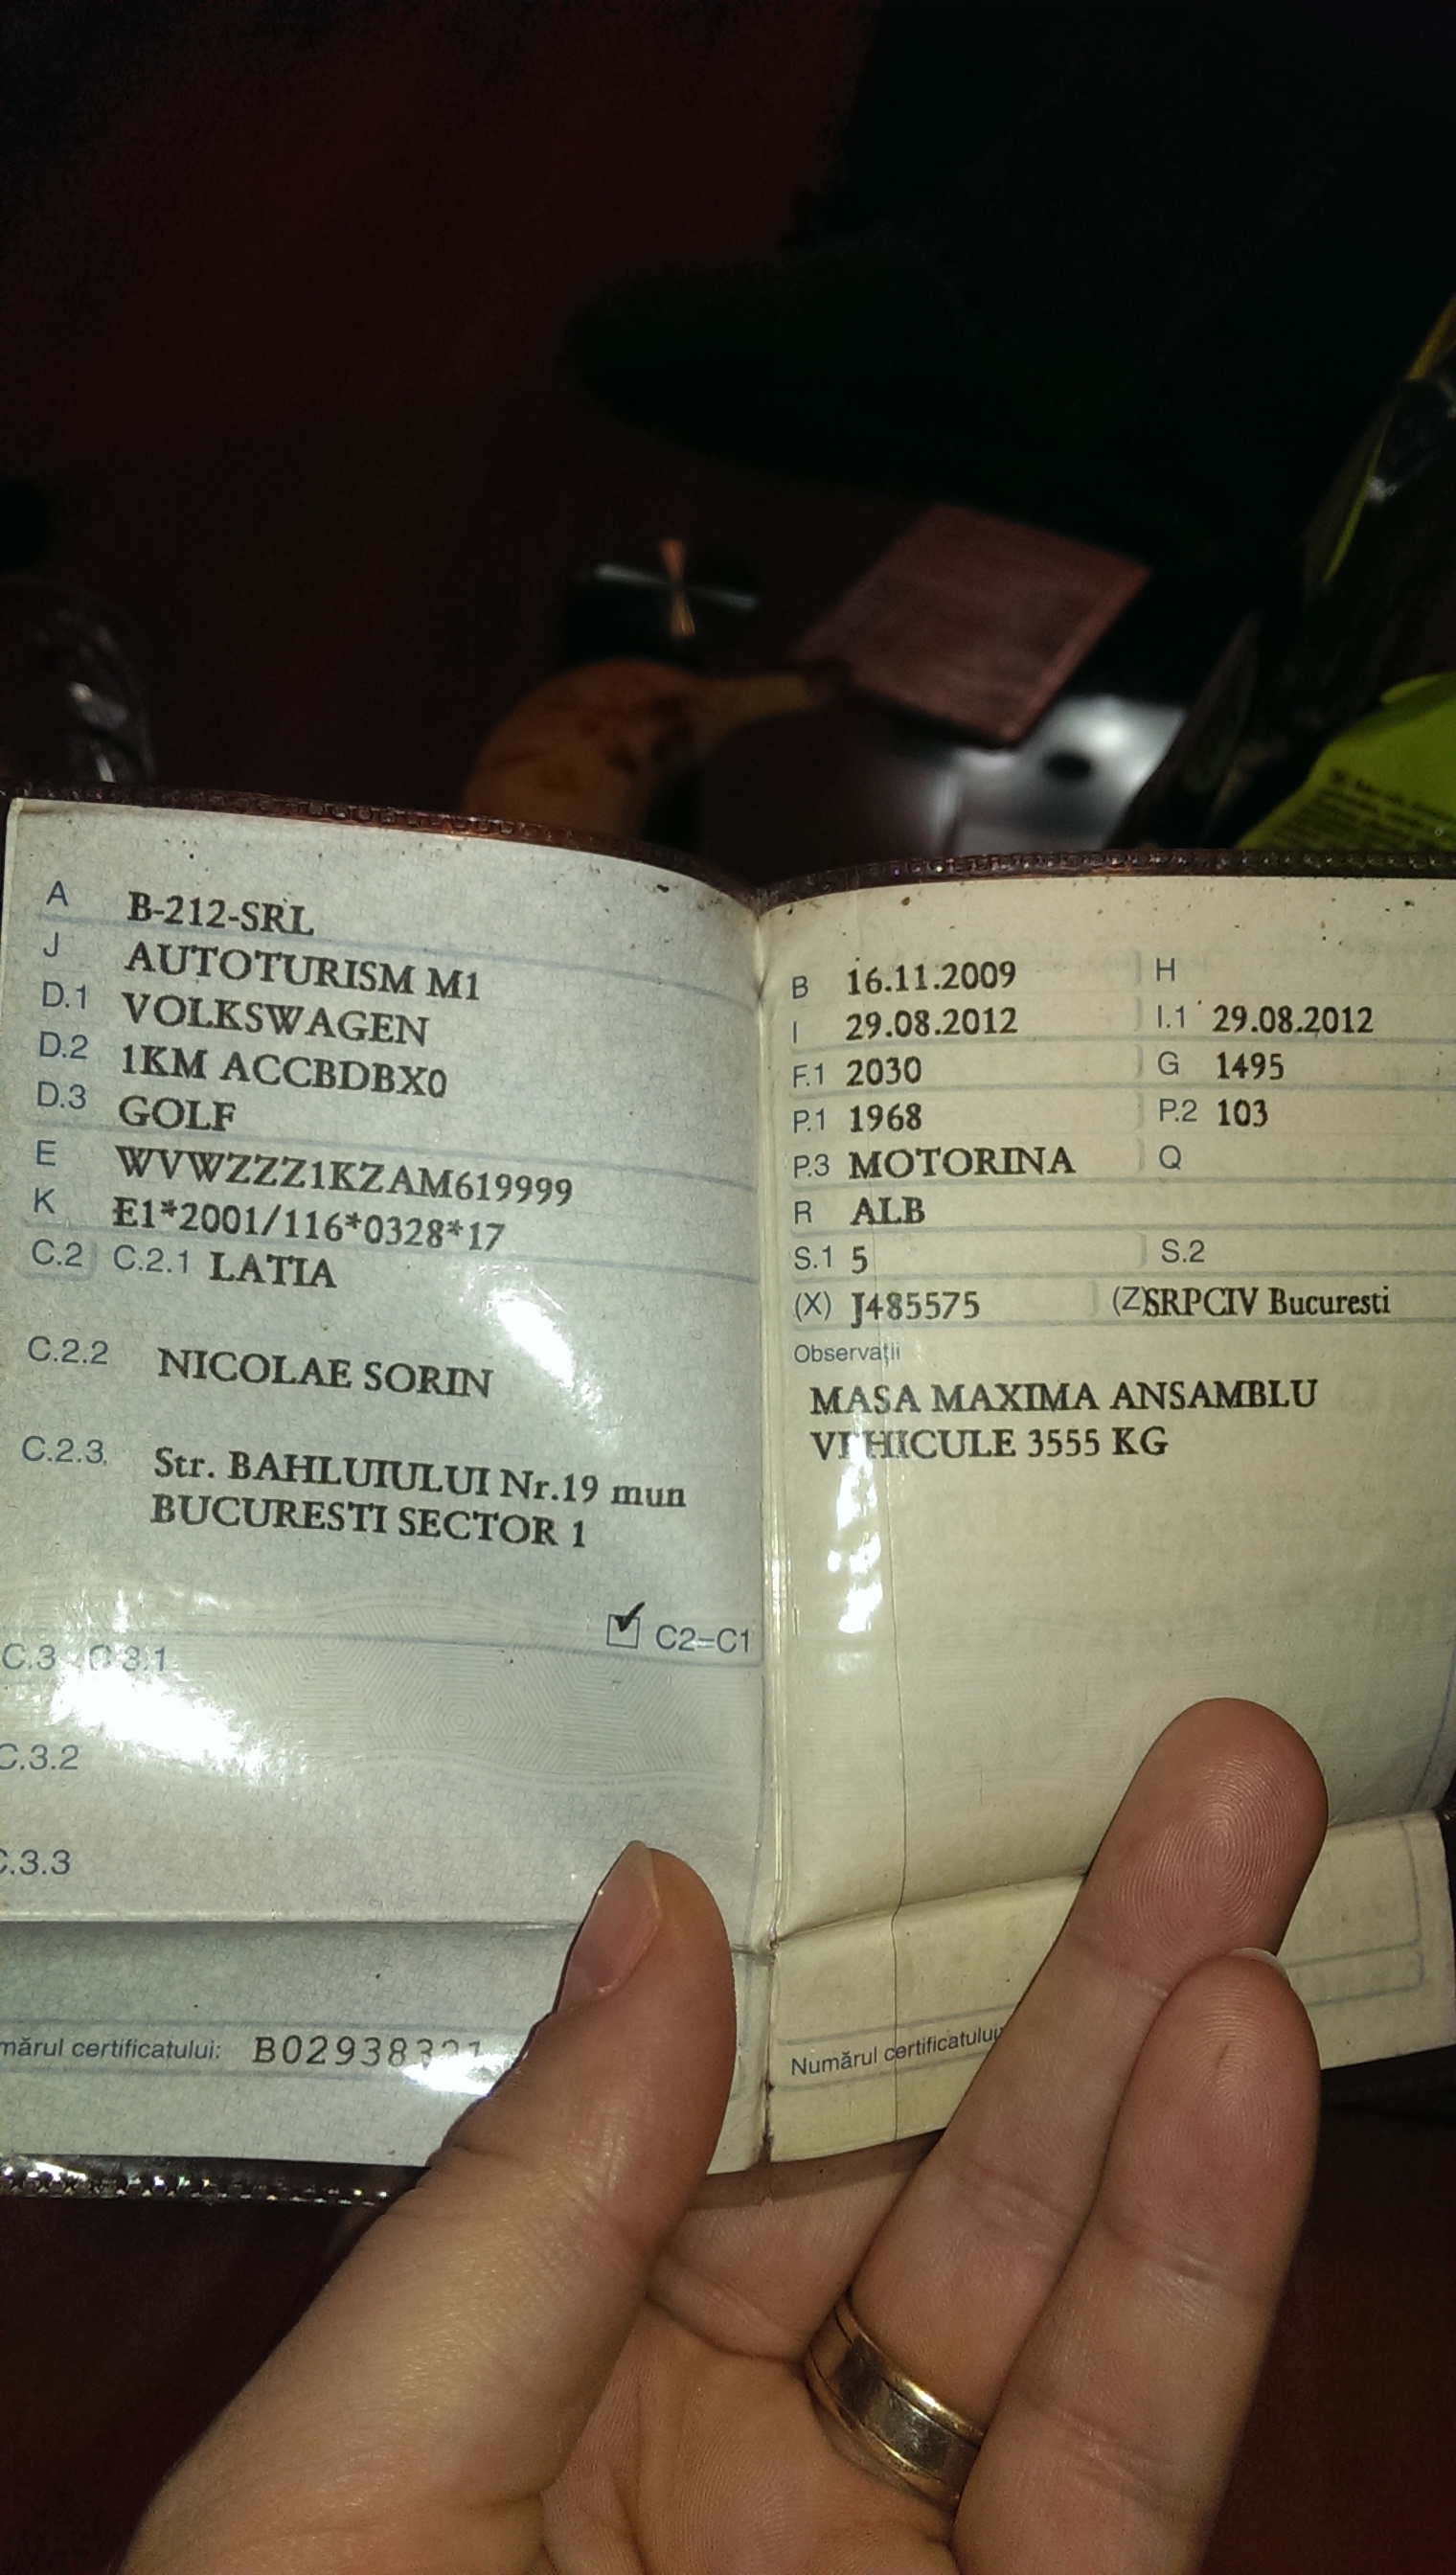 A B-212-SRL
J AUTOTURISM M1
D.1 VOLKSWAGEN
D.2 1KM ACCBDBX0
D.3 GOLF
E WVWZZZ1KZAM619999
K E1*2001/116*0328*17
C.2 C.2.1 LATIA
C.2.2 NICOLAE SORIN
C.2.3 Str. BAHLUIULUI Nr.19 mun
BUCURESTI SECTOR 1
C2=C1
C.3 C.3.1
C.3.2
C.3.3
certificatului:
B 16.11.2009 H
I 29.08.2012 I.1 29.08.2012
F.1 2030 G 1495
P.1 1968 P.2 103
P.3 MOTORINA Q
R ALB
S.1 5 S.2
(X) J485575 (Z) SRPCIV Bucuresti
Observații
MASA MAXIMA ANSAMBLU
VEHICULE 3555 KG
Numărul certificatului